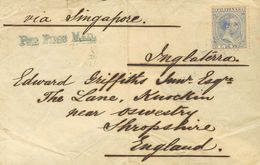 via Singapore.
PER FIRST MAIL
FILIPINAS
Inglaterra.
Edward Griffiths Junr. Esqre
The Lane, Knockin
near Oswestry
Shropshire
England.